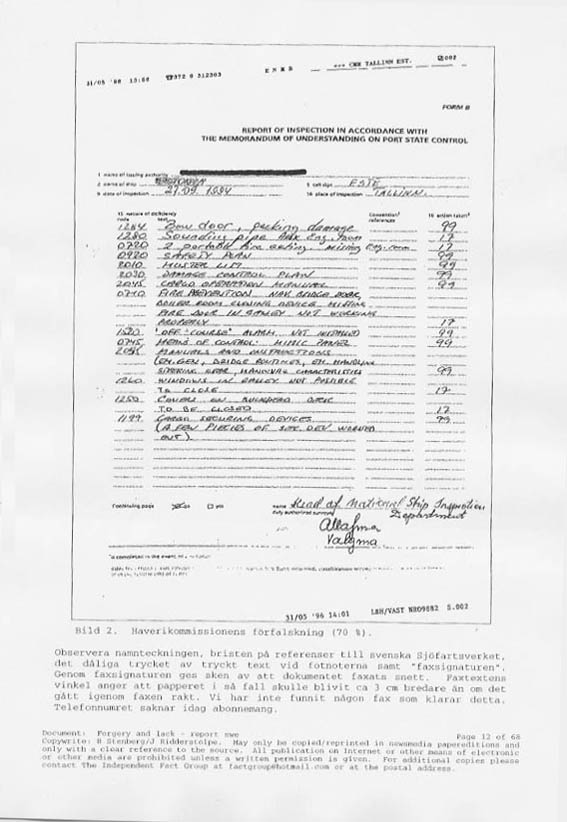 31/05 '96 13:56 ☎372 0 312303 E N M B *** CMB TALLINN EST. 002
FORM B
REPORT OF INSPECTION IN ACCORDANCE WITH
THE MEMORANDUM OF UNDERSTANDING ON PORT STATE CONTROL
1 name of issuing authority
2 name of ship ESTONIA 5 call sign ESTE
9 date of inspection 27.09.1994 10 place of inspection TALLINN.
15 nature of deficiency Convention references 16 action taken
1284 Bow door, packing damage 99
1280 Sounding pipe Aux Eng. room 17
0720 2 portable fire exting. missing eng. room 17
0920 SAFETY PLAN 99
2010 MUSTER LIST 99
2030 DAMAGE CONTROL PLAN 99
2045 CARGO OPERATION MANUAL 99
0710 FIRE PREVENTION NAV. BRIDGE DOOR,
BOILER ROOM CLOSING DEVICE MISSING
FIRE DOOR IN GALLEY NOT WORKING
PROPERLY 17
1520 "OFF-COURSE" ALARM NOT INSTALLED 99
0745 MEANS OF CONTROL: MIMIC PANEL 99
MANUALS AND INSTRUCTIONS
EM. GEN, BRIDGE ROUTINES,
STEERING GEAR, MANOEUV. CHARACTERISTICS 99
1260 WINDOWS IN GALLEY NOT POSSIBLE
TO CLOSE 17
1250 COVERS ON BULKHEAD DECK
TO BE CLOSED 17
1199 CARGO SECURING DEVICES 99
(A FEW PIECES OF SEC. DEV WORNED
OUT)
Continuing page no yes name Head of National Ship Inspection
duly authorized surveyor Department
Valgma
31/05 '96 14:01 LBH/VAST NRO9882 S.002
Bild 2. Haverikommissionens förfalskning (70 %).
Observera namnteckningen, bristen på referenser till svenska Sjöfartsverket,
det dåliga trycket av tryckt text vid fotnoterna samt "faxsignaturen".
Genom faxsignaturen ges sken av att dokumentet faxats snett. Faxtextens
vinkel anger att papperet i så fall skulle blivit ca 3 cm bredare än om det
gått igenom faxen rakt. Vi har inte funnit någon fax som klarar detta.
Telefonnumret saknar idag abonnemang.
Document: Forgery and lack - report swe Page 12 of 68
Copywrite: B Stenberg/J Ridderstolpe. May only be copied/reprinted in newsmedia papereditions and
only with a clear reference to the source. All publication on Internet or other means of electronic
or other media are prohibited unless a written permission is given. For additional copies please
contact The Independent Fact Group at factgroup@hotmail.com or at the postal address.